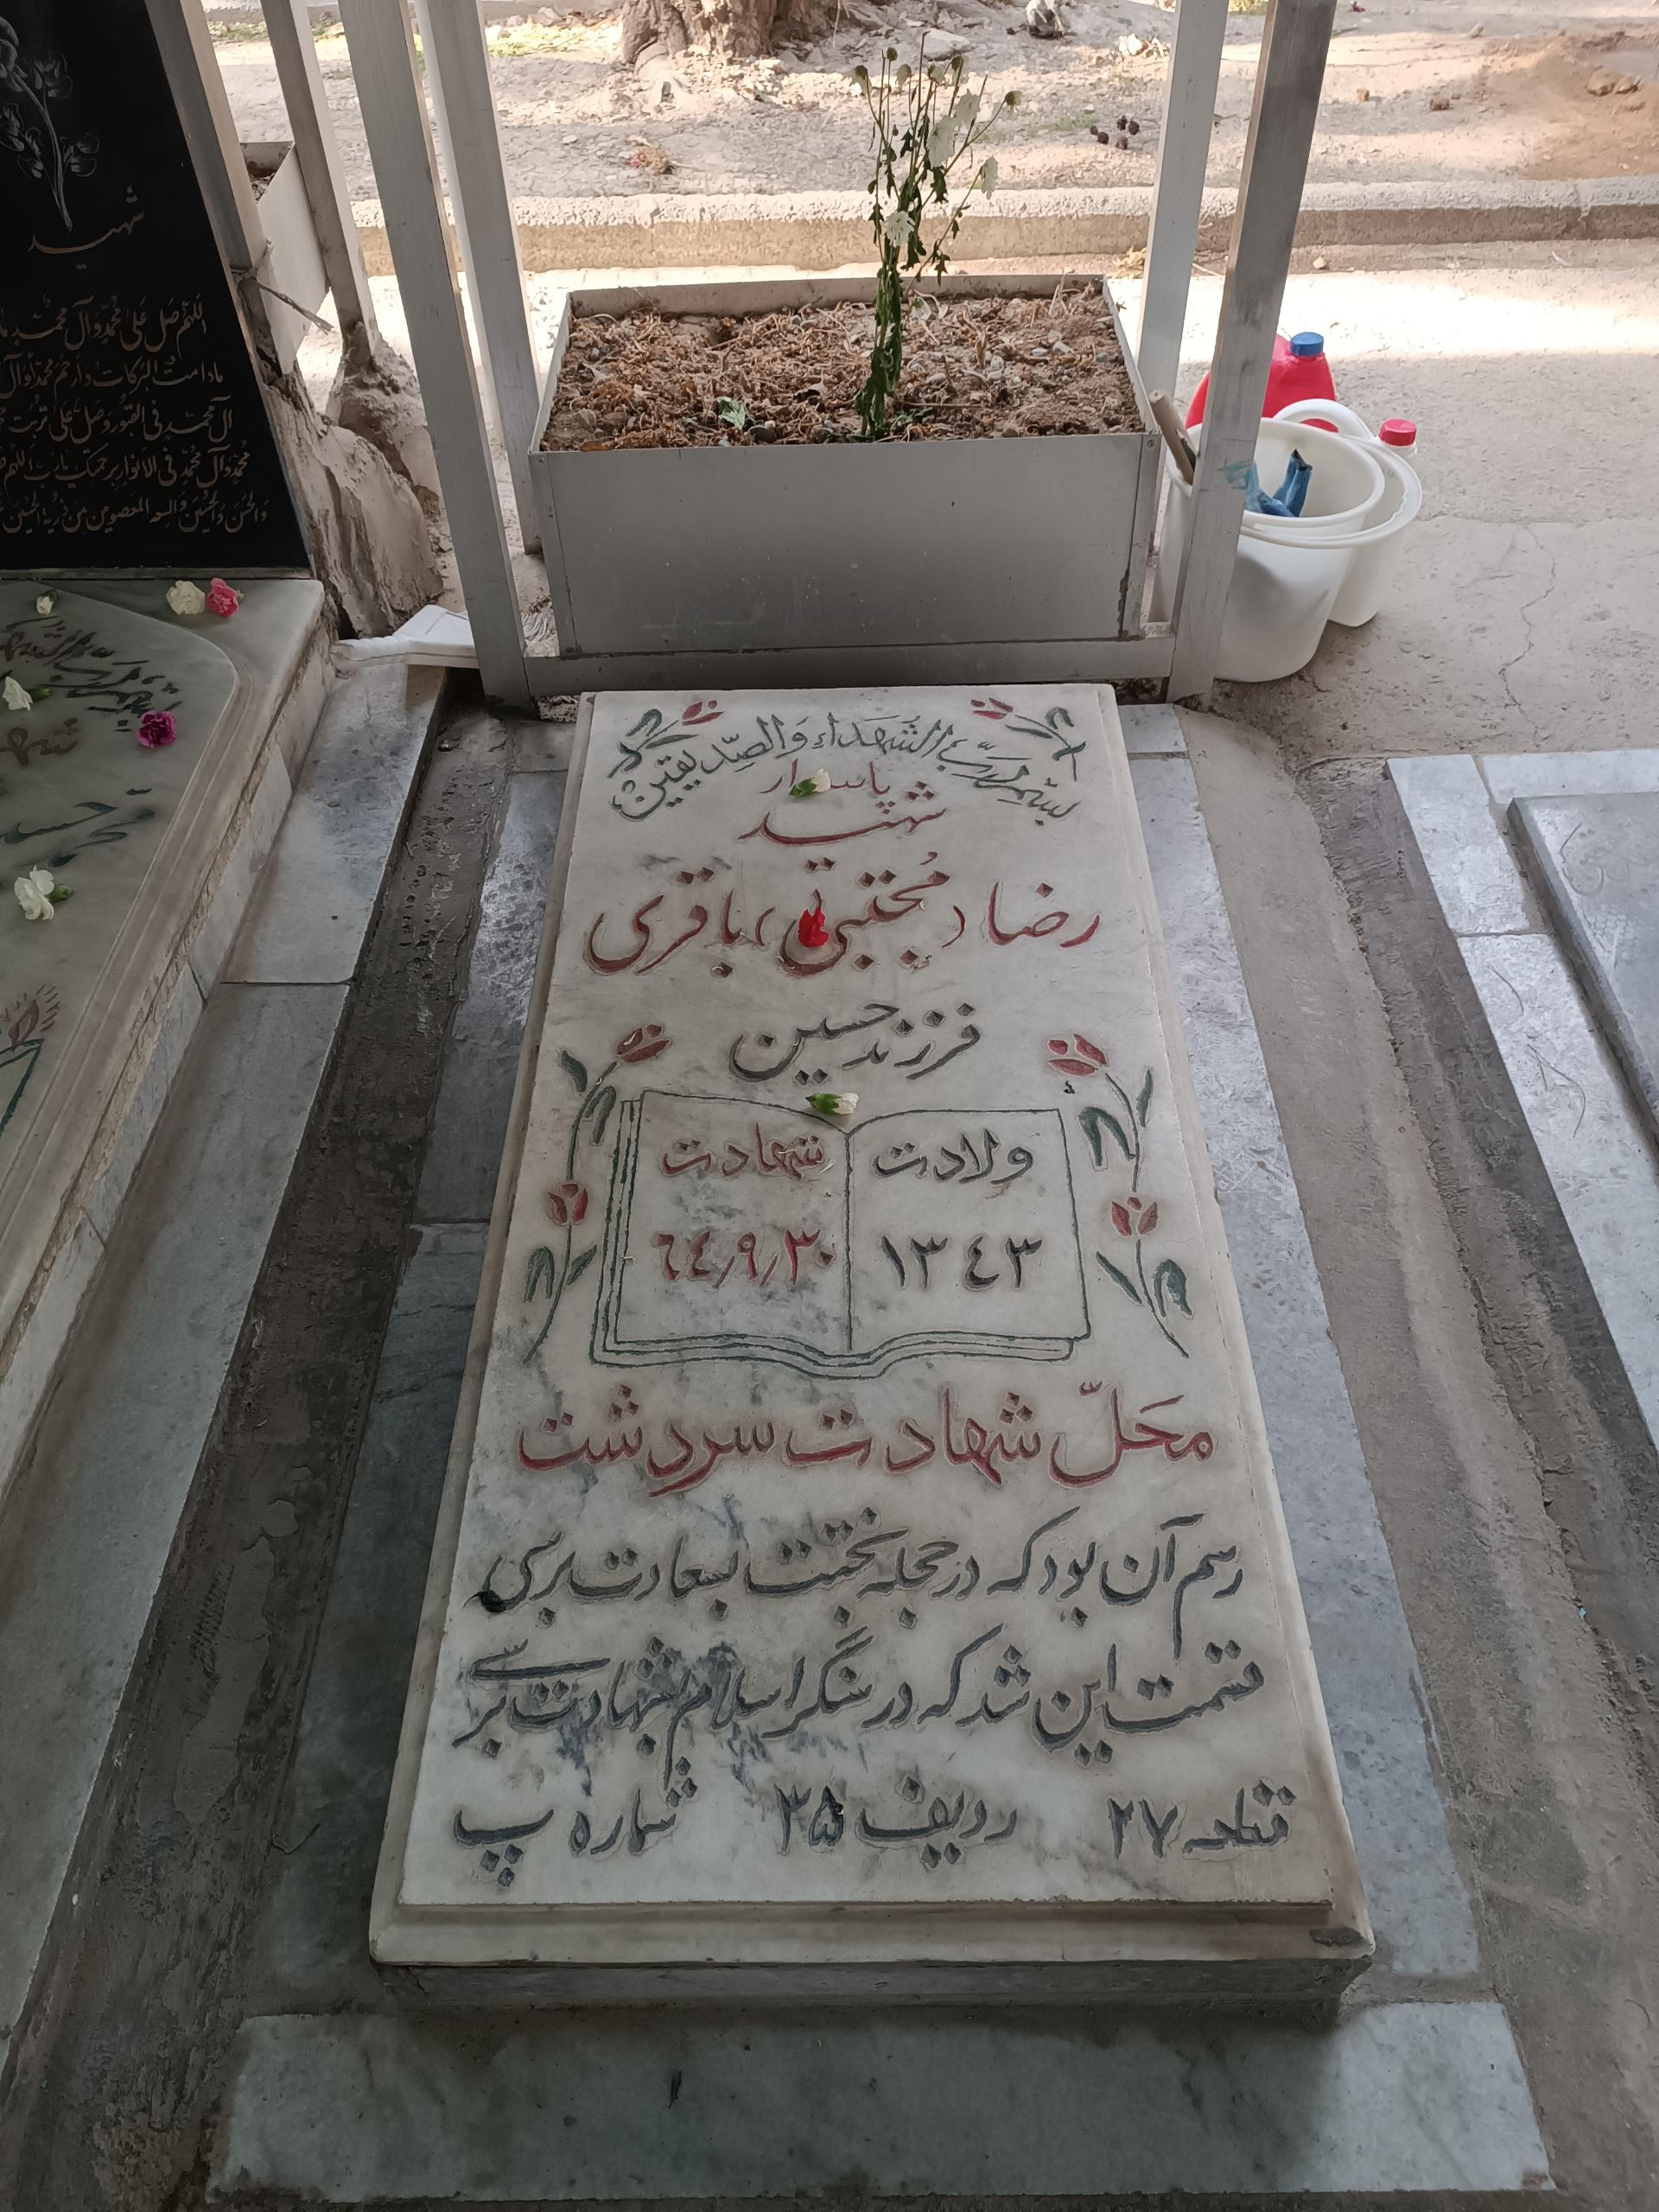 شهید
اللهم صل علی محمد و آل محمد
مادامت البرکات وارحم محمد و آل
آل محمد فی القبور و صل علی تربت
محمد و آل محمد فی الانوار برحمتک یا رب اللهم
والحسن والحسین والسعه المعصومین من ذریة الحسین
بسم رب الشهداء والصدیقین
پاسدار
شهید
رضا (مجتبی) باقری
فرزند حسین
ولادت
۱۳٤۳
شهادت
٦٤/۹/۳۰
محل شهادت سردشت
رسم آن بود که در حجله بختت بسعادت برسی
قسمت این شد که در سنگر اسلام بشهادت برسی
قطعه ۲۷ ردیف ۳۵ شماره پ